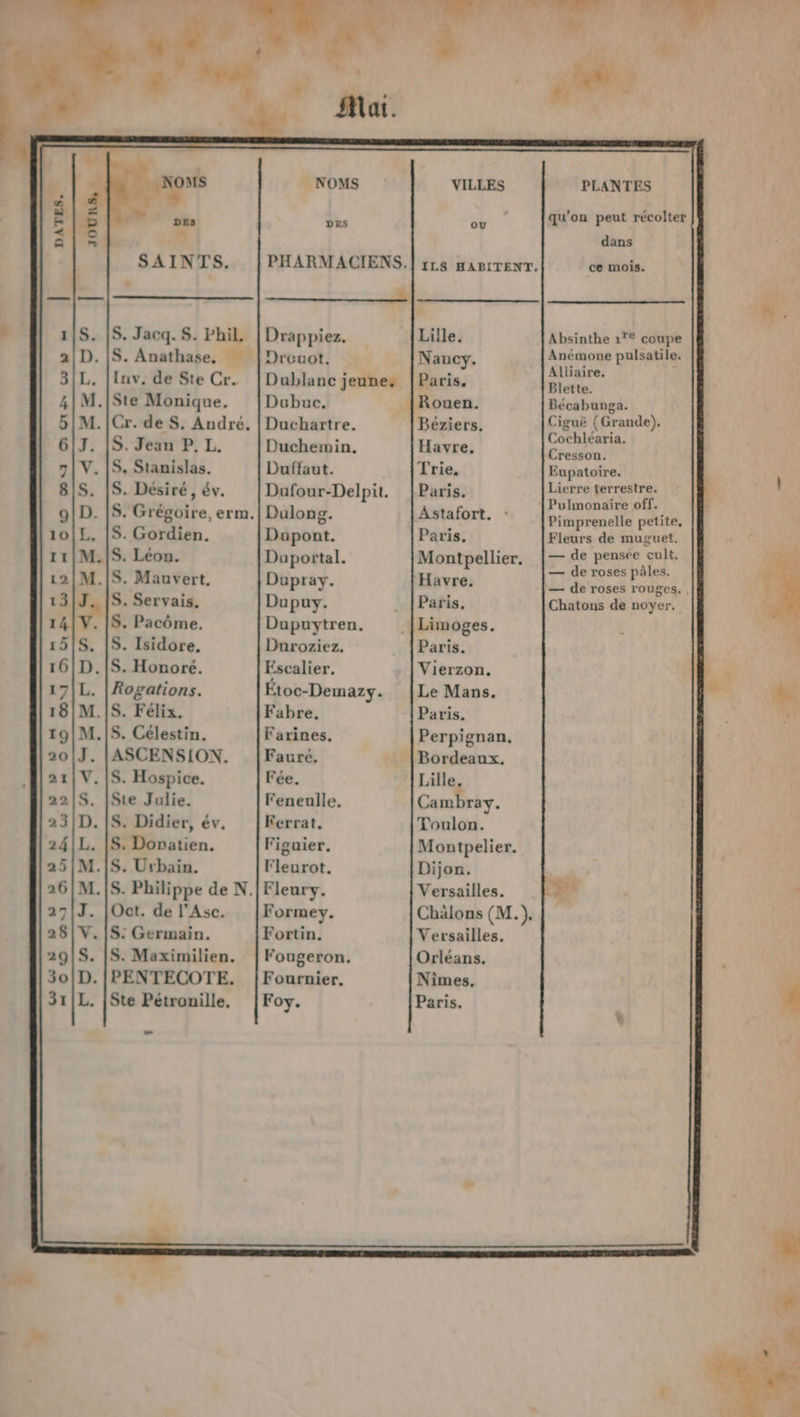 Mai.
DATES. | JOURS. | NOMS DES SAINTS. | NOMS DES PHARMACIENS. | VILLES OU ILS HABITENT. | PLANTES qu'on peut récolter dans ce mois.
1 | S. | S. Jacq. S. Phil. | Drappiez. | Lille. | Absinthe 1re coupe
2 | D. | S. Anathase. | Drouot. | Nancy. | Anémone pulsatile.
3 | L. | Inv. de Ste Cr. | Dublanc jeune. | Paris. | Alliaire.
Blette.
4 | M. | Ste Monique. | Dubuc. | Rouen. | Bécabunga.
5 | M. | Cr. de S. André. | Duchartre. | Béziers. | Ciguë (Grande).
6 | J. | S. Jean P. L. | Duchemin. | Havre. | Cochléaria.
Cresson.
7 | V. | S. Stanislas. | Duffaut. | Trie. | Eupatoire.
8 | S. | S. Désiré, év. | Dufour-Delpit. | Paris. | Lierre terrestre.
9 | D. | S. Grégoire, erm. | Dulong. | Astafort. | Pulmonaire off.
Pimprenelle petite.
10 | L. | S. Gordien. | Dupont. | Paris. | Fleurs de muguet.
11 | M. | S. Léon. | Duportal. | Montpellier. | — de pensée cult.
12 | M. | S. Mauvert. | Dupray. | Havre. | — de roses pâles.
— de roses rouges.
13 | J. | S. Servais. | Dupuy. | Paris. | Chatons de noyer.
14 | V. | S. Pacôme. | Dupuytren. | Limoges.
15 | S. | S. Isidore. | Duroziez. | Paris.
16 | D. | S. Honoré. | Escalier. | Vierzon.
17 | L. | Rogations. | Étoc-Demazy. | Le Mans.
18 | M. | S. Félix. | Fabre. | Paris.
19 | M. | S. Célestin. | Farines. | Perpignan.
20 | J. | ASCENSION. | Fauré. | Bordeaux.
21 | V. | S. Hospice. | Fée. | Lille.
22 | S. | Ste Julie. | Feneulle. | Cambray.
23 | D. | S. Didier, év. | Ferrat. | Toulon.
24 | L. | S. Donatien. | Figuier. | Montpelier.
25 | M. | S. Urbain. | Fleurot. | Dijon.
26 | M. | S. Philippe de N. | Fleury. | Versailles.
27 | J. | Oct. de l'Asc. | Formey. | Châlons (M.).
28 | V. | S. Germain. | Fortin. | Versailles.
29 | S. | S. Maximilien. | Fougeron. | Orléans.
30 | D. | PENTECOTE. | Fournier. | Nîmes.
31 | L. | Ste Pétronille. | Foy. | Paris.